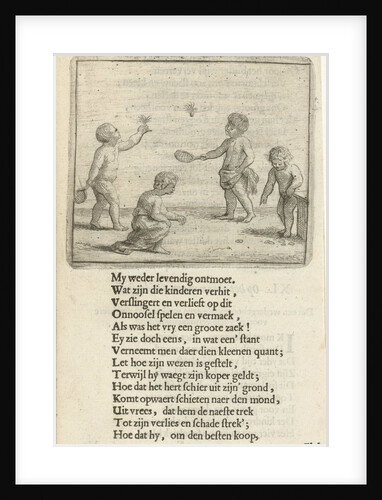 My weder levendig ontmoet.
Wat zijn die kinderen verhit,
Verslingert en verlieft op dit
Onnoosel spelen en vermaek,
Als was het vry een groote zaek!
Ey zie doch eens, in wat een' stant
Verneemt men daer dien kleenen quant;
Let hoe zijn wezen is gestelt,
Terwijl hy waegt zijn koper geldt;
Hoe dat het hert schier uit zijn' grond,
Komt opwaert schieten naer den mond,
Uit vrees, dat hem de naeste trek
Tot zijn verlies en schade strek';
Hoe dat hy, om den besten koop,